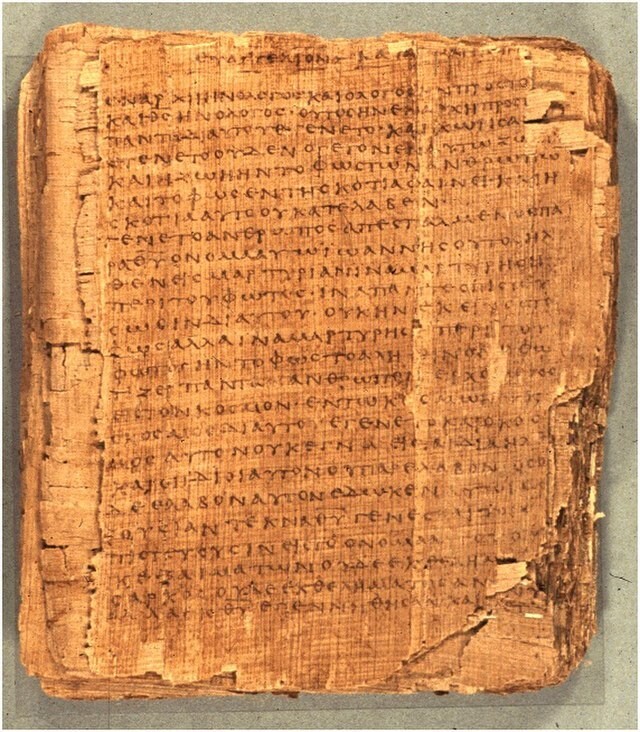 ΕΥΑΓΓΕΛΙΟΝ ΚΑΤΑ
ΕΝΑΡΧΗΗΝΟΛΟΓΟΣΚΑΙΟΛΟΓΟΣΗΝΠΡΟΣΤΟ
ΚΑΙΘΣΗΝΟΛΟΓΟΣΟΥΤΟΣΗΝΕΝΑΡΧΗΠΡΟΣΤ
ΠΑΝΤΑΔΙΑΥΤΟΥΕΓΕΝΕΤΟΚΑΙΧΩΡΙΣΑ
ΕΓΕΝΕΤΟΟΥΔΕΝΟΓΕΓΟΝΕΝΕΝΑΥΤΩΖΩ
ΚΑΙΗΖΩΗΗΝΤΟΦΩΣΤΩΝΑΝΘΡΩΠΩΝ
ΚΑΙΤΟΦΩΣΕΝΤΗΣΚΟΤΙΑΦΑΙΝΕΙΚΑΙΗ
ΣΚΟΤΙΑΑΥΤΟΟΥΚΑΤΕΛΑΒΕΝ
ΕΓΕΝΕΤΟΑΝΘΡΩΠΟΣΑΠΕΣΤΑΛΜΕΝΟΣΠΑ
ΡΑΘΥΟΝΟΜΑΑΥΤΩΙΩΑΝΝΗΣΟΥΤΟΣΗΛ
ΘΕΝΕΙΣΜΑΡΤΥΡΙΑΝΙΝΑΜΑΡΤΥΡΗΣΗ
ΠΕΡΙΤΟΥΦΩΤΟΣ·ΙΝΑΠΑΝΤΕΣΠΙΣΤΕΥ
ΣΩΣΙΝΔΙΑΥΤΟΥ·ΟΥΚΗΝΕΚΕΙΝΟΣΤΟ
ΦΩΣΑΛΛΑΙΝΑΜΑΡΤΥΡΗΣΗΠΕΡΙΤΟΥ
ΦΩΤΟΣΗΝΤΟΦΩΣΤΟΑΛΗΘΙΝΟΝΟΦΩ
ΤΙΖΕΙΠΑΝΤΑΑΝΘΡΩΠΟΝΕΡΧΟΜΕΝΟΝ
ΕΙΣΤΟΝΚΟΣΜΟΝ·ΕΝΤΩΚΟΣΜΩΗΝ
ΚΟΣΜΟΣΔΙΑΥΤΟΥΕΓΕΝΕΤΟΚΑΙΟΚΟΣ
ΜΟΣΑΥΤΟΝΟΥΚΕΓΝΩ·ΕΙΣΤΑΙΔΙΑΗΛ
ΚΑΙΟΙΙΔΙΟΙΑΥΤΟΝΟΥΠΑΡΕΛΑΒΟΝ·ΟΣΟ
ΔΕΕΛΑΒΟΝΑΥΤΟΝΕΔΩΚΕΝΑΥΤΟΙΣ
ΞΟΥΣΙΑΝΤΕΚΝΑΘΥΓΕΝΕΣΘΑΙΤΟΙΣ
ΠΙΣΤΕΥΟΥΣΙΝΕΙΣΤΟΟΝΟΜΑ
ΟΥΚΕΞΑΙΜΑΤΩΝΟΥΔΕΕΚΘΕΛΗΜΑ
ΣΑΡΚΟΣΟΥΔΕΕΚΘΕΛΗΜΑΤΟΣΑΝ
ΑΛΛΕΚΘΥΕΓΕΝΝΗΘΗΣΑΝΚΑΙ